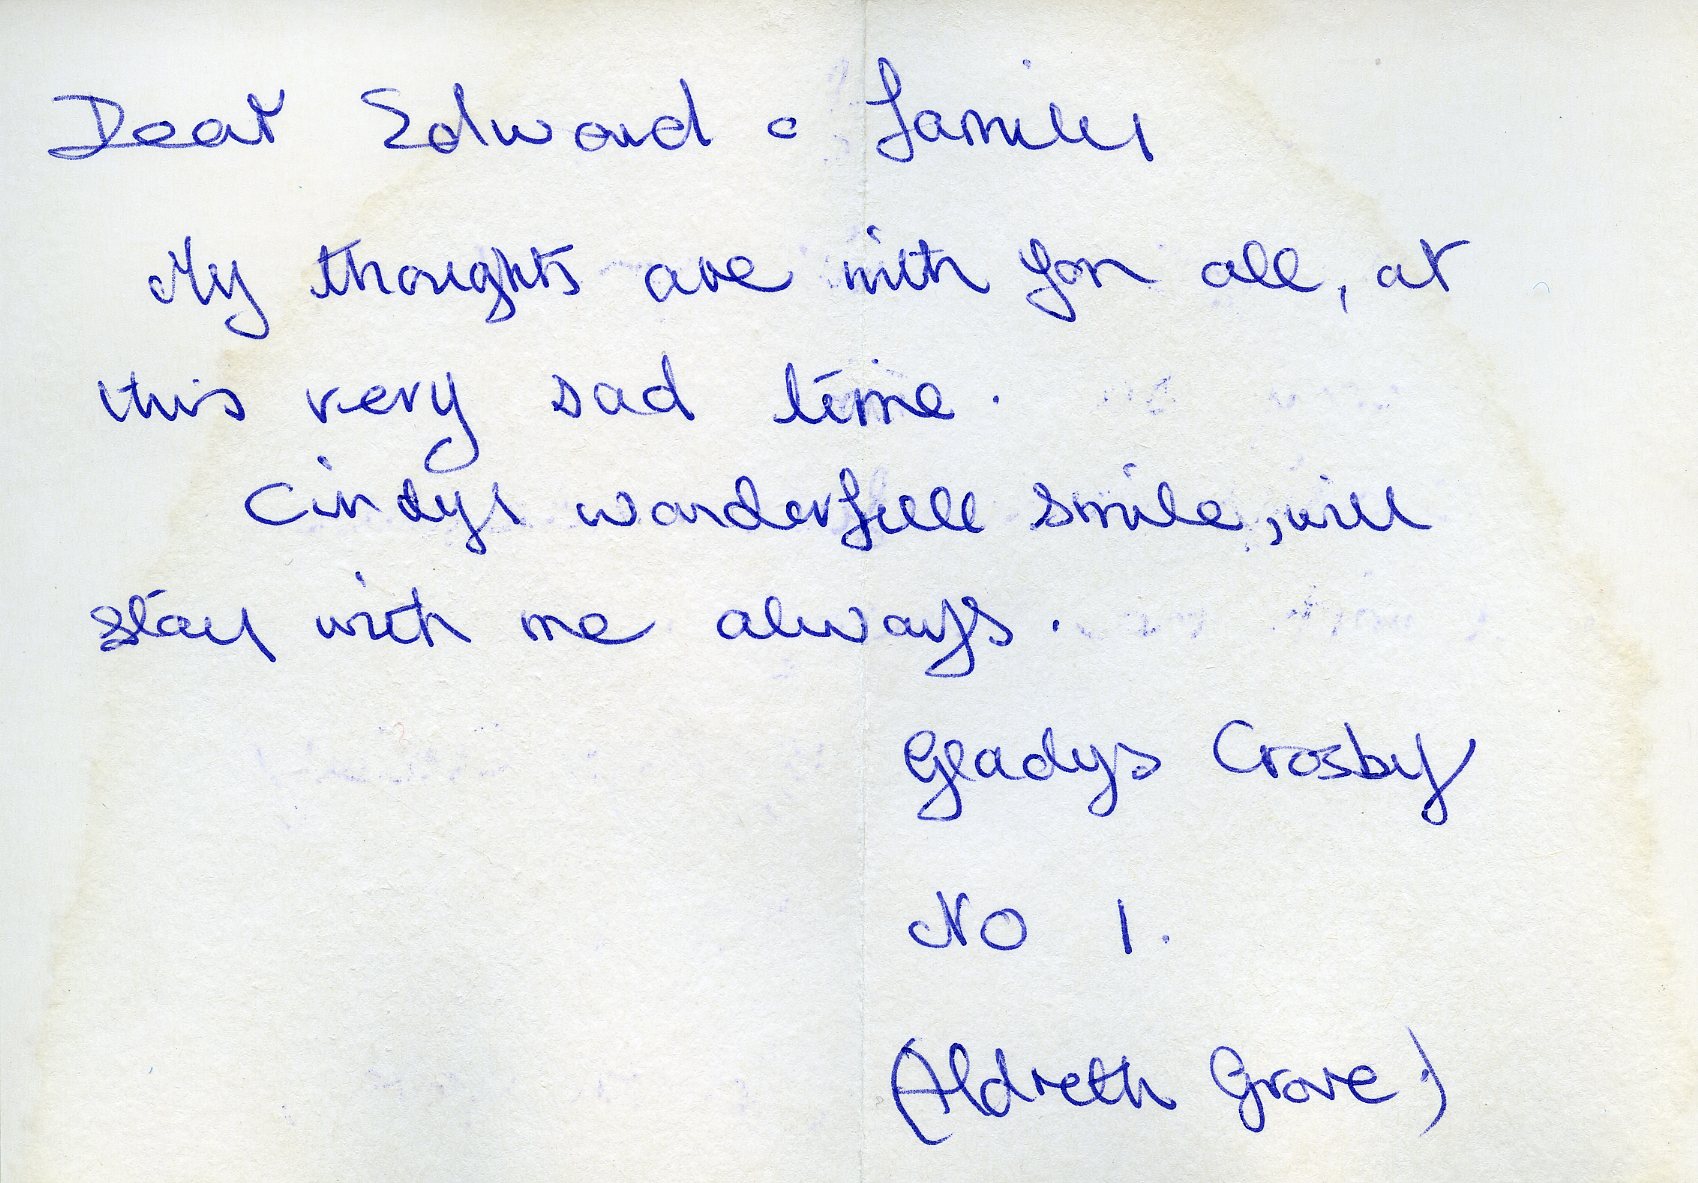 Dear Edward & family
My thoughts are with you all, at
this very sad time.
Cindys wonderfull smile, will
stay with me always.
Gladys Crosby
No 1.
(Aldreth Grove.)